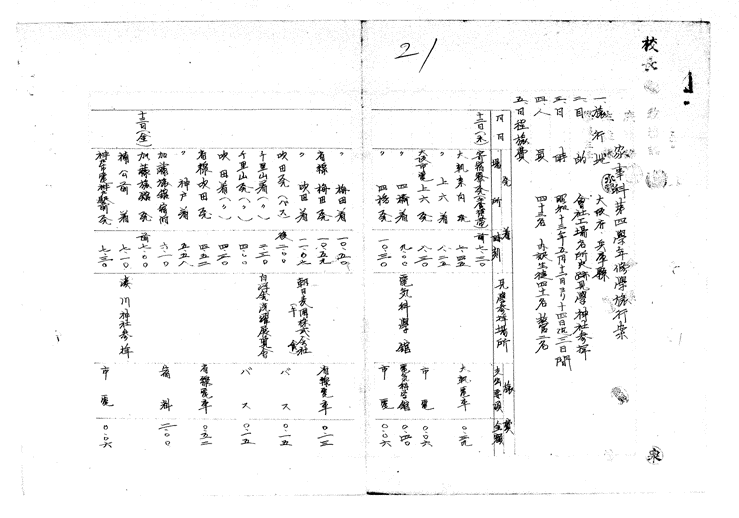 21
校長
家事科第四學年修學旅行案
一、旅行地 大阪府 兵庫縣
二、目的 會社工場名所史跡見學神社参拝
三、日時 昭和十三年五月十二日ヨリ十四日迄三日間
四、人員 四十三名 内訳生徒四十一名 教官二名
五、日程旅費
月日 場所 発着 時刻 見學参拝場所 旅費 支出要項 金額
十二日(木) 前 七.三〇
大軌奈内発 七.四五 大軌電車 〇.三九
〃 上六着 八.三五
大阪市電上六発 八.三〇 市電 〇.〇六
〃 四橋着 九.〇〇 電気科學館 電気科学館 〇.四〇
〃 四橋発 一〇.三〇 市電 〇.〇六
〃 梅田着 一〇.五〇
省線梅田発 一〇.五九 省線電車 〇.一三
〃 吹田着 一一.〇七 朝日麦酒株式会社 (午食)
吹田発(バス) 後 二.〇〇 バス 〇.一五
千里山着(〃) 二.二〇
千里山発(〃) 四.〇〇 バス 〇.一五
吹田着(〃) 四.二〇
省線吹田発 四.五二 省線電車 〇.五二
〃 神戸着 五.五八
加藤旅館宿泊 六.一〇 宿料 二.〇〇
十三日(金) 加藤旅館発 前 七.〇〇
楠公前着 七.一〇 湊川神社参拝
七.三〇 市電 〇.〇六